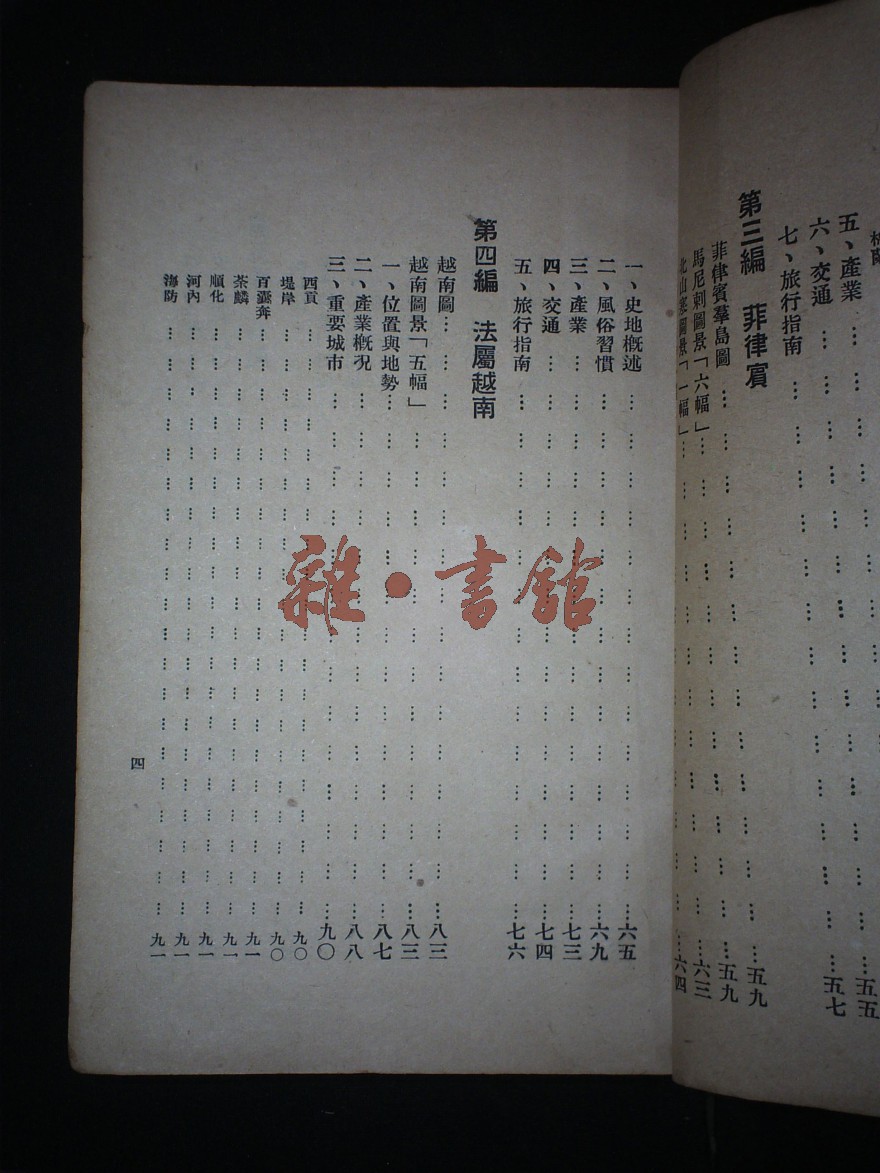 五、產業………五五
六、交通………五七
七、旅行指南………
第三編　菲律賓
菲律賓羣島圖………五九
馬尼剌圖景「六幅」………六三
北山塞圖景「一幅」………六四
一、史地概述………六五
二、風俗習慣………六九
三、產業………七三
四、交通………七四
五、旅行指南………七六
第四編　法屬越南
越南圖………八三
越南圖景「五幅」………八三
一、位置與地勢………八七
二、產業概况………八八
三、重要城市………九〇
西貢………九〇
堤岸………九〇
百囊奔………九一
茶麟………九一
順化………九一
河內………九一
海防………九一
四
雜·書館